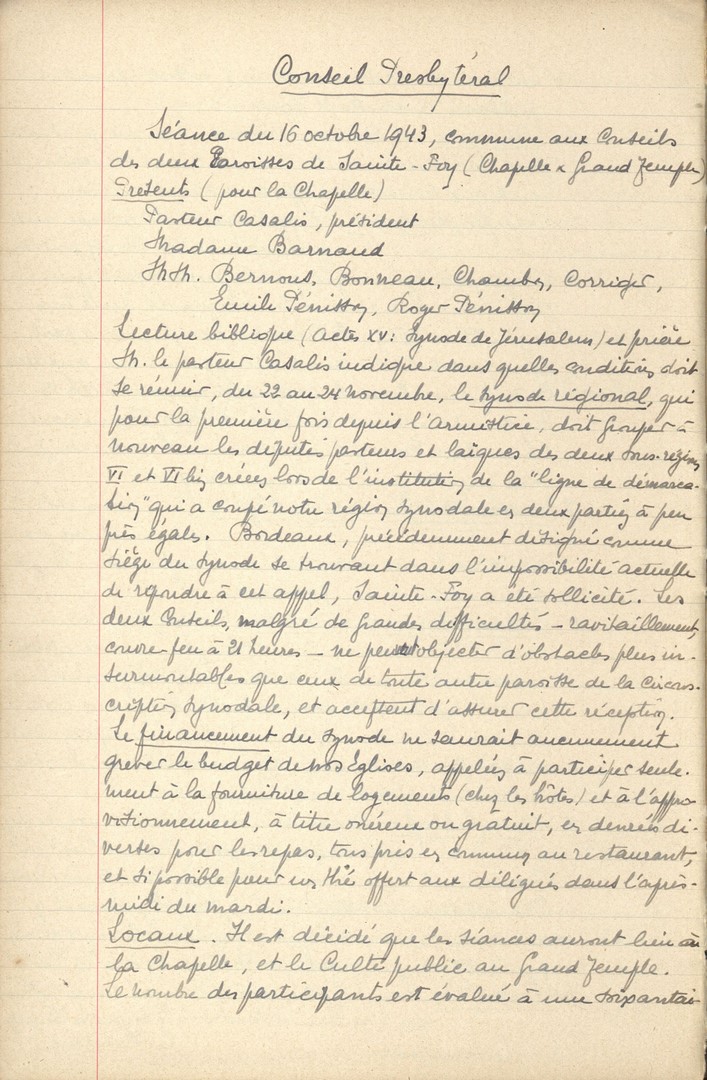 Conseil Presbytéral
Séance du 16 octobre 1943, commune aux Conseils
des deux Paroisses de Sainte-Foy (Chapelle & Grand Temple)
Présents (pour la Chapelle)
Pasteur Casalis, président
Madame Barnaud
MM. Bernous, Bonneau, Chambon, Corriger,
Emile Pénisson, Roger Pénisson
Lecture biblique (Actes XV: Synode de Jérusalem) et prière
M. le pasteur Casalis indique dans quelles conditions doit
se réunir, du 22 au 24 novembre, le Synode régional, qui
pour la première fois depuis l'armistice, doit grouper à
nouveau les députés pasteurs et laïques des deux sous-régions
VI et VI bis créées lors de l'institution de la "ligne de démarca-
tion" qui a coupé notre région synodale en deux parties à peu
près égales. Bordeaux, précédemment désigné comme
siège du Synode se trouvant dans l'impossibilité actuelle
de répondre à cet appel, Sainte-Foy a été sollicité. Les
deux Conseils, malgré de grandes difficultés - ravitaillement,
couvre-feu à 21 heures - ne peuvent objecter d'obstacles plus in-
surmontables que ceux de toute autre paroisse de la Circons-
cription synodale, et acceptent d'assurer cette réception.
Le financement du Synode ne saurait aucunement
grever le budget de nos Églises, appelées à participer seule-
ment à la fourniture de logements (chez les hôtes) et à l'appro-
visionnement, à titre onéreux ou gratuit, en denrées di-
verses pour les repas, tous pris en commun au restaurant,
et si possible pour un thé offert aux délégués dans l'après-
midi du mardi.
Locaux. Il est décidé que les séances auront lieu à
la Chapelle, et le Culte public au Grand Temple.
Le nombre des participants est évalué à une soixantai-